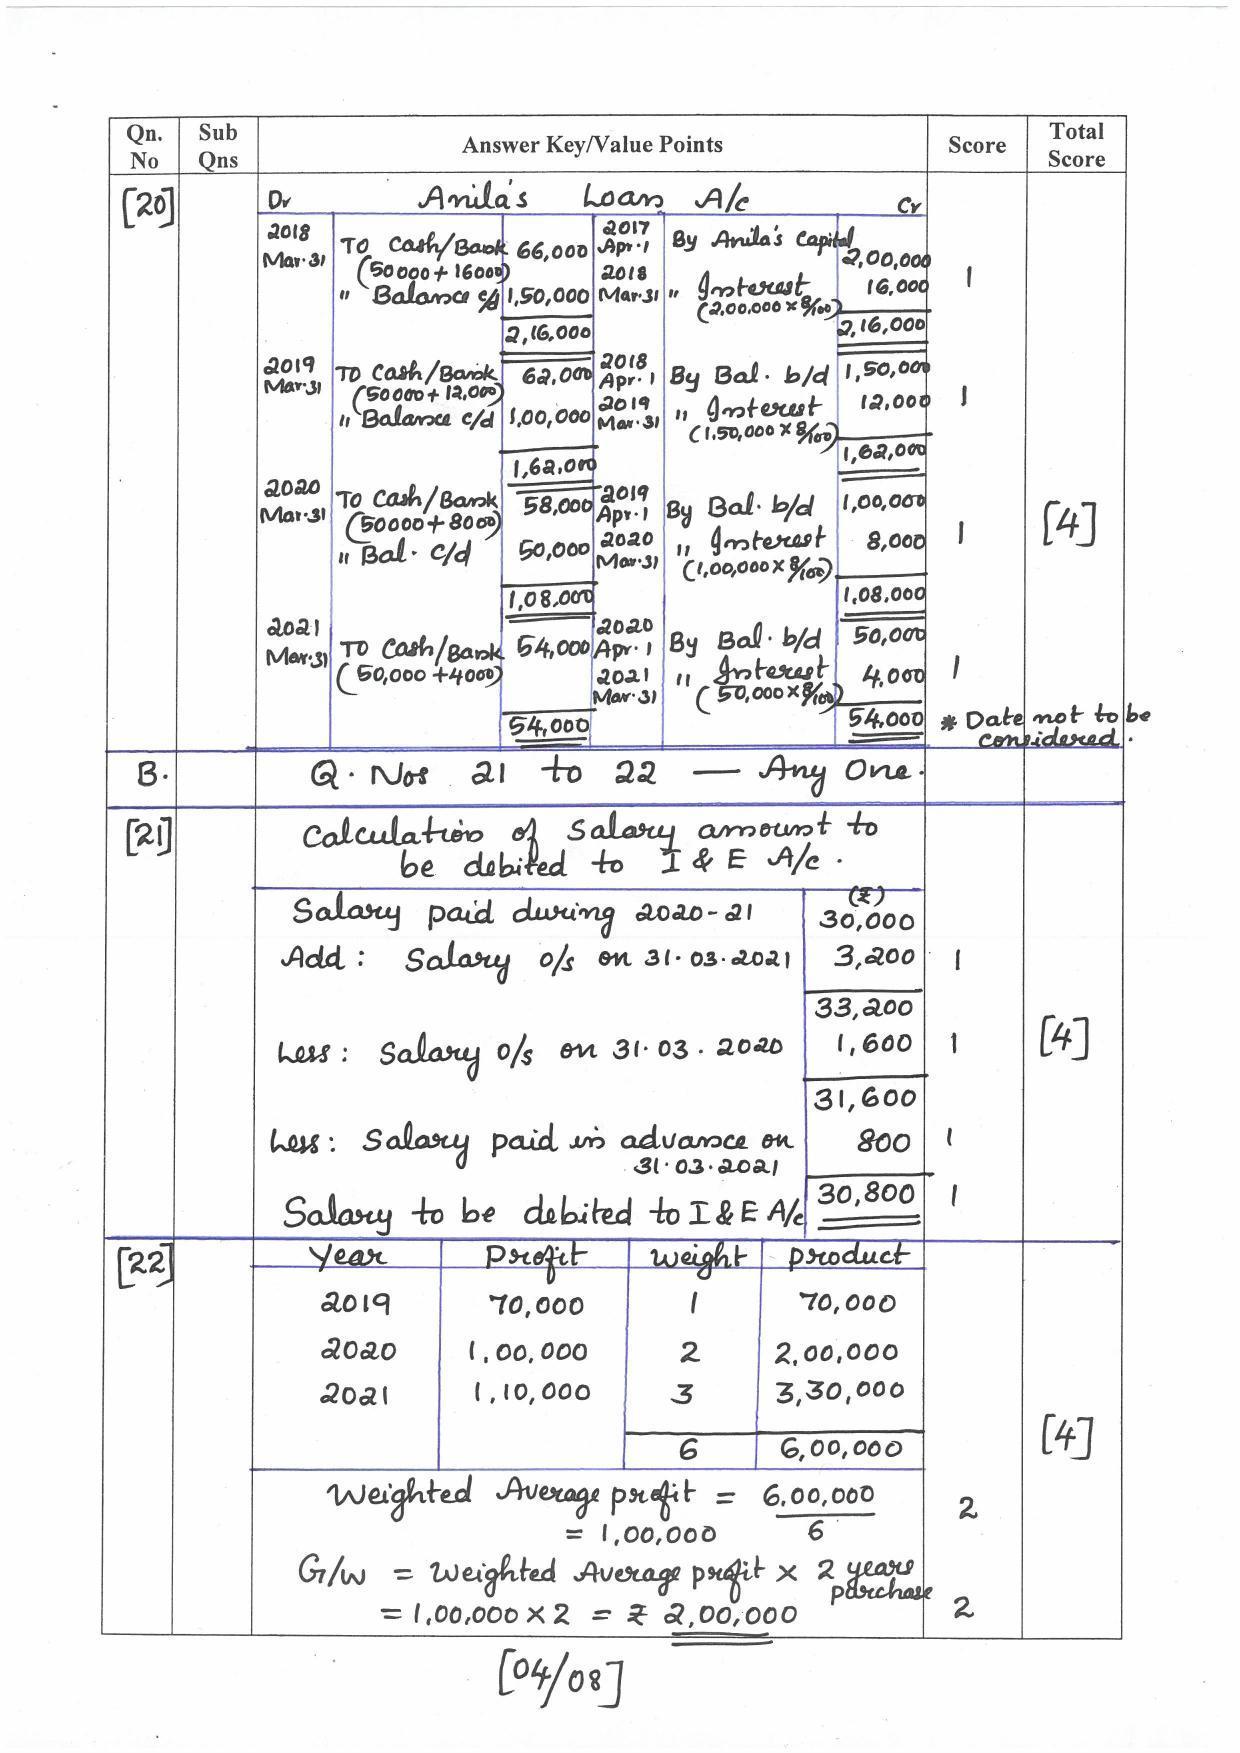 Qn. No Sub Qns Answer Key/Value Points Score Total Score
[20] Dr Anila's Loan A/c Cr
2018 Mar.31 To Cash/Bank 66,000 2017 Apr.1 By Anila's Capital 2,00,000
(50000 + 16000) 2018 16,000 1
" Balance c/d 1,50,000 Mar.31 " Interest
(2,00,000 x 8/100)
2,16,000 2,16,000
2019 Mar.31 To Cash/Bank 62,000 2018 Apr.1 By Bal. b/d 1,50,000
(50000 + 12,000) 2019 12,000 1
" Balance c/d 1,00,000 Mar.31 " Interest
(1,50,000 x 8/100)
1,62,000 1,62,000
2020 Mar.31 To Cash/Bank 58,000 2019 Apr.1 By Bal. b/d 1,00,000 [4]
(50000 + 8000) 2020 8,000 1
" Bal. c/d 50,000 Mar.31 " Interest
(1,00,000 x 8/100)
1,08,000 1,08,000
2021 Mar.31 To Cash/Bank 54,000 2020 Apr.1 By Bal. b/d 50,000
(50,000 + 4000) 2021 Mar.31 " Interest 4,000 1
(50,000 x 8/100)
54,000 54,000 * Date not to be
considered.
B. Q. Nos 21 to 22 — Any One.
[21] Calculation of Salary amount to
be debited to I & E A/c.
(₹)
Salary paid during 2020-21 30,000
Add : Salary o/s on 31.03.2021 3,200 1
33,200
Less : Salary o/s on 31.03.2020 1,600 1 [4]
31,600
Less : Salary paid in advance on 800 1
31.03.2021
Salary to be debited to I & E A/c 30,800 1
[22] Year Profit Weight Product
2019 70,000 1 70,000
2020 1,00,000 2 2,00,000
2021 1,10,000 3 3,30,000
6 6,00,000 [4]
Weighted Average profit = 6,00,000 2
= 1,00,000 6
G/w = Weighted Average profit x 2 years
purchase
= 1,00,000 x 2 = ₹ 2,00,000 2
[04/08]